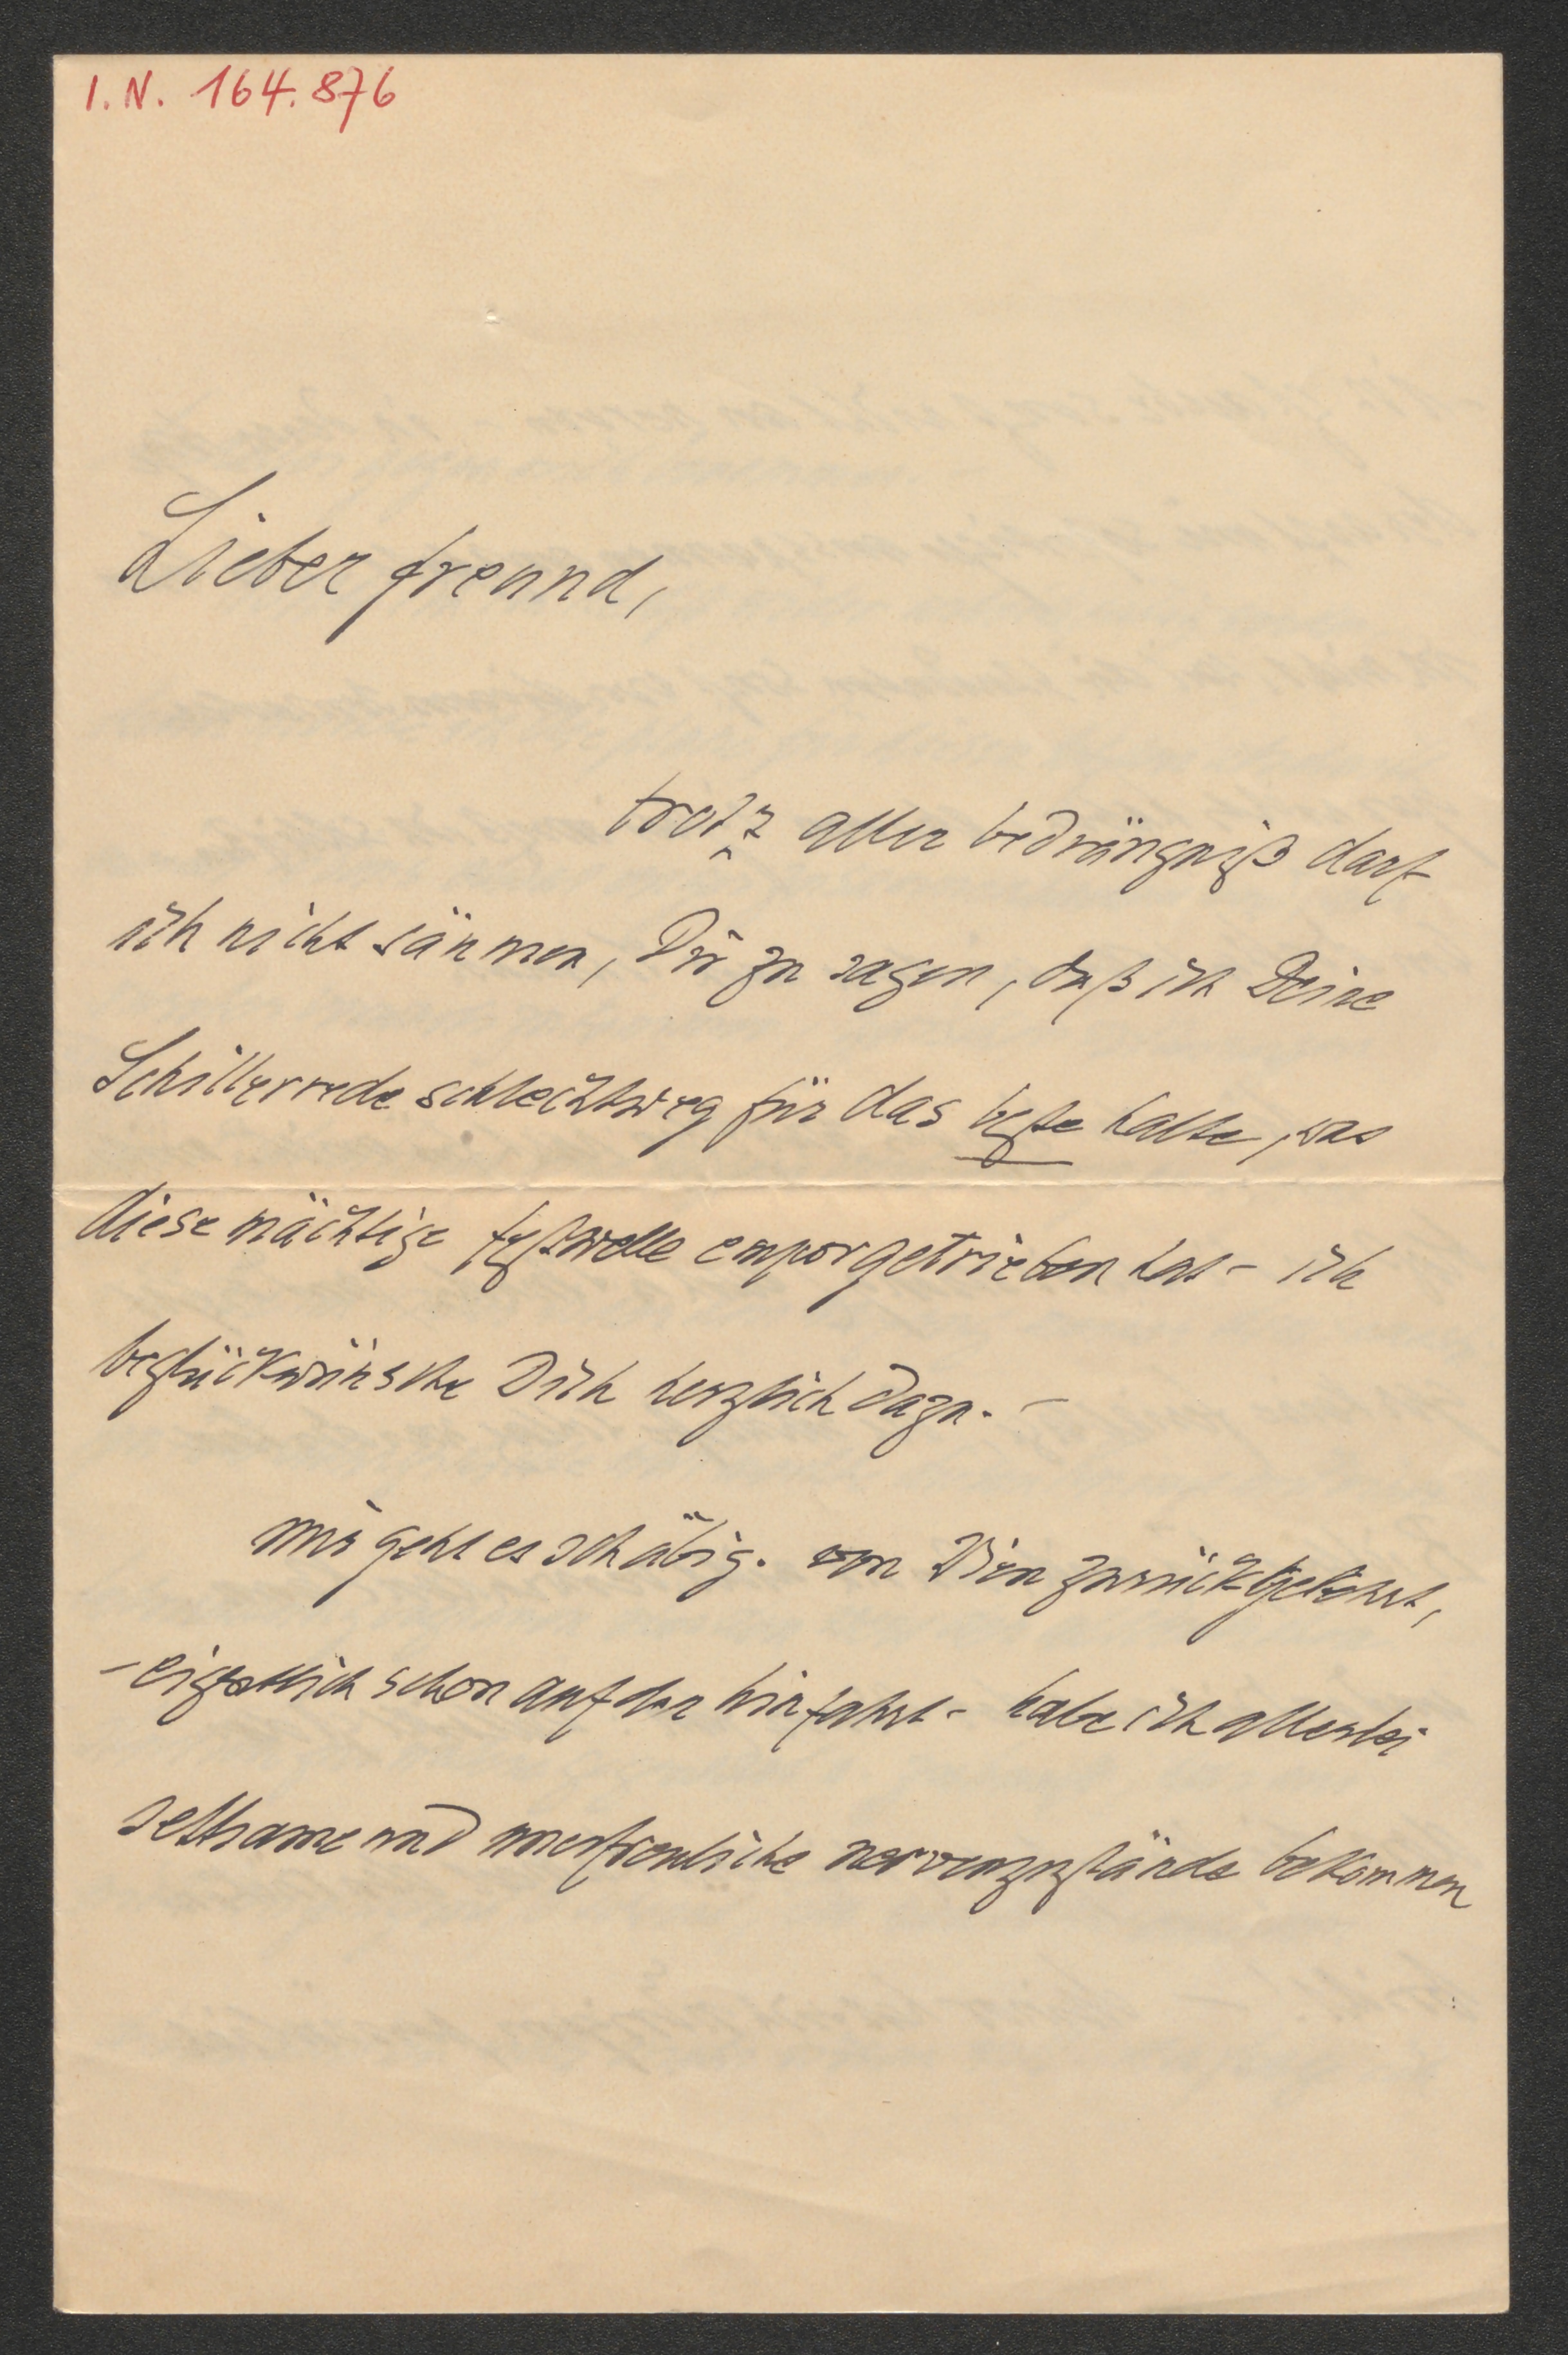 I. N. 164.876
Lieber freund,
trotz aller bedrängniß darf
ich nicht säumen, Dir zu sagen, daß ich Deine
Schillerrede schlechtweg für das beste halte, was
diese mächtige festwelle emporgetrieben hat – ich
beglückwünsche Dich herzlich dazu. –
mir geht es schäbig. von Wien zurückgekehrt,
– eigentlich schon auf der hinfahrt – habe ich allerlei
seltsame und unerfreuliche nervenzustände bekommen